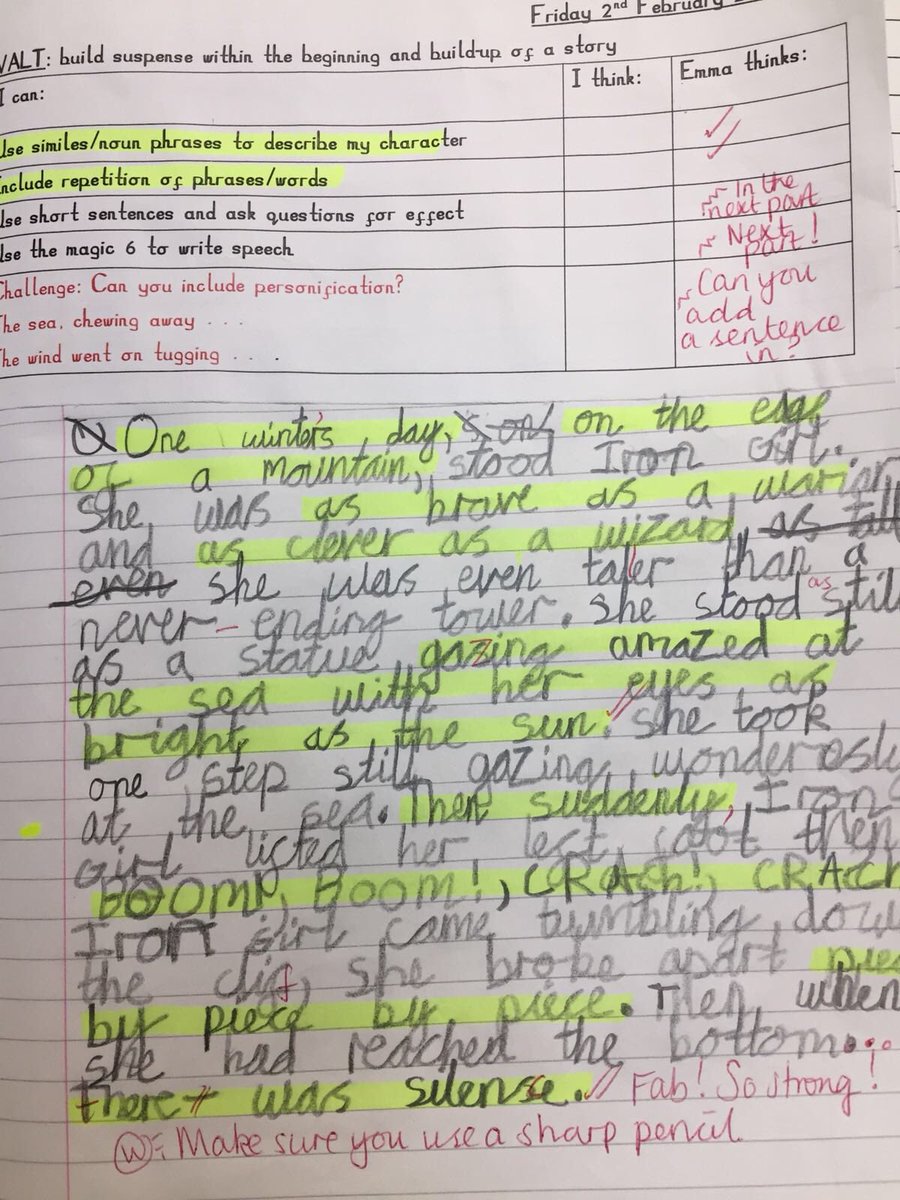 Friday 2nd February
WALT: build suspense within the beginning and build-up of a story
I can:
I think:
Emma thinks:
Use similes/noun phrases to describe my character
Include repetition of phrases/words
Use short sentences and ask questions for effect
~ In the next part
Use the magic 6 to write speech
~ Next part!
Challenge: Can you include personification?
The sea, chewing away . . .
The wind went on tugging . . . .
~ Can you
add
a sentence
in?
One winter's day, on the edge
of a mountain, stood Iron Girl.
She was as brave as a warior
and as clever as a wizard, as tall
even she was even taller than a
never-ending tower. She stood as still
as a statue, gazing amazed at
the sea with her eyes as
bright as the sun. She took
one step still gazing wonderosly
at the sea. Then suddenly, Iron
Girl lifted her left foot then
BOOM!, BOOM!, CRASH!, CRACH
Iron girl came tumbling down
the cliff, she broke apart piece
by piece by piece. Then, when
she had reached the bottom...
there was silense. Fab! So strong!
W: Make sure you use a sharp pencil.